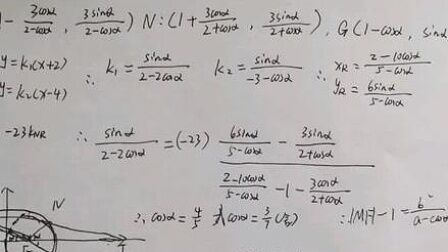 1 - 3cosα/(2-cosα), 3sinα/(2-cosα)) N:(1+3cosα/(2+cosα), 3sinα/(2+cosα)), G(1-cosα, sinα
y=k₁(x+2) ∴ k₁=sinα/(2-2cosα) k₂=sinα/(-3-cosα) ∴ x_R=(2-10cosα)/(5-cosα)
y=k₂(x-4) y_R=6sinα/(5-cosα)
-23k_NR ∴ sinα/(2-2cosα)=(-23) (6sinα/(5-cosα) - 3sinα/(2+cosα))/((2-10cosα)/(5-cosα) - 1 - 3cosα/(2+cosα))
N
∴ cosα=4/5 cosα=3/7 ∴|MH|-1=